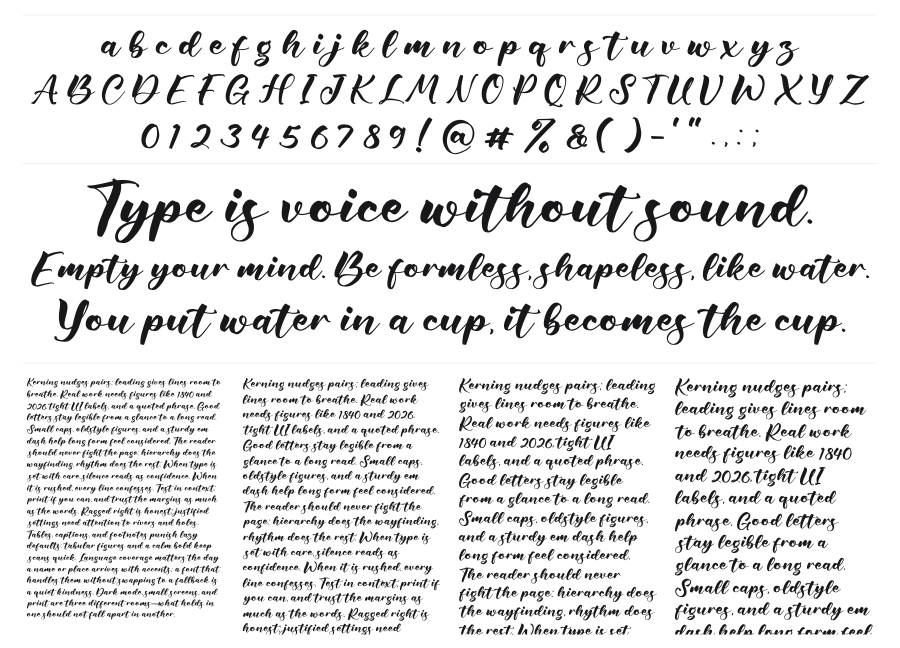 a b c d e f g h i j k l m n o p q r s t u v w x y z
A B C D E F G H I J K L M N O P Q R S T U V W X Y Z
0 1 2 3 4 5 6 7 8 9 ! @ # % & ( ) - ' " . , : ;
Type is voice without sound.
Empty your mind. Be formless, shapeless, like water.
You put water in a cup, it becomes the cup.
Kerning nudges pairs; leading gives lines room to
breathe. Real work needs figures like 1840 and
2026, tight UI labels, and a quoted phrase. Good
letters stay legible from a glance to a long read.
Small caps, oldstyle figures, and a sturdy em
dash help long form feel considered. The reader
should never fight the page: hierarchy does the
wayfinding, rhythm does the rest. When type is
set with care, silence reads as confidence. When
it is rushed, every line confesses. Test in context,
print if you can, and trust the margins as much
as the words. Ragged right is honest; justified
settings need attention to rivers and holes.
Tables, captions, and footnotes punish lazy
defaults; tabular figures and a calm bold keep
scans quick. Language coverage matters the day
a name or place arrives with accents; a font that
handles them without swapping to a fallback is
a quiet kindness. Dark mode, small screens, and
print are three different rooms—what holds in
one should not fall apart in another.
Kerning nudges pairs; leading gives
lines room to breathe. Real work
needs figures like 1840 and 2026,
tight UI labels, and a quoted phrase.
Good letters stay legible from a
glance to a long read. Small caps,
oldstyle figures, and a sturdy em
dash help long form feel considered.
The reader should never fight the
page: hierarchy does the wayfinding,
rhythm does the rest. When type is
set with care, silence reads as
confidence. When it is rushed, every
line confesses. Test in context, print if
you can, and trust the margins as
much as the words. Ragged right is
honest; justified settings need
Kerning nudges pairs; leading
gives lines room to breathe.
Real work needs figures like
1840 and 2026, tight UI
labels, and a quoted phrase.
Good letters stay legible
from a glance to a long read.
Small caps, oldstyle figures,
and a sturdy em dash help
long form feel considered.
The reader should never
fight the page: hierarchy does
the wayfinding, rhythm does
the rest. When type is set
Kerning nudges pairs;
leading gives lines room
to breathe. Real work
needs figures like 1840
and 2026, tight UI
labels, and a quoted
phrase. Good letters
stay legible from a
glance to a long read.
Small caps, oldstyle
figures, and a sturdy em
dash help long form feel